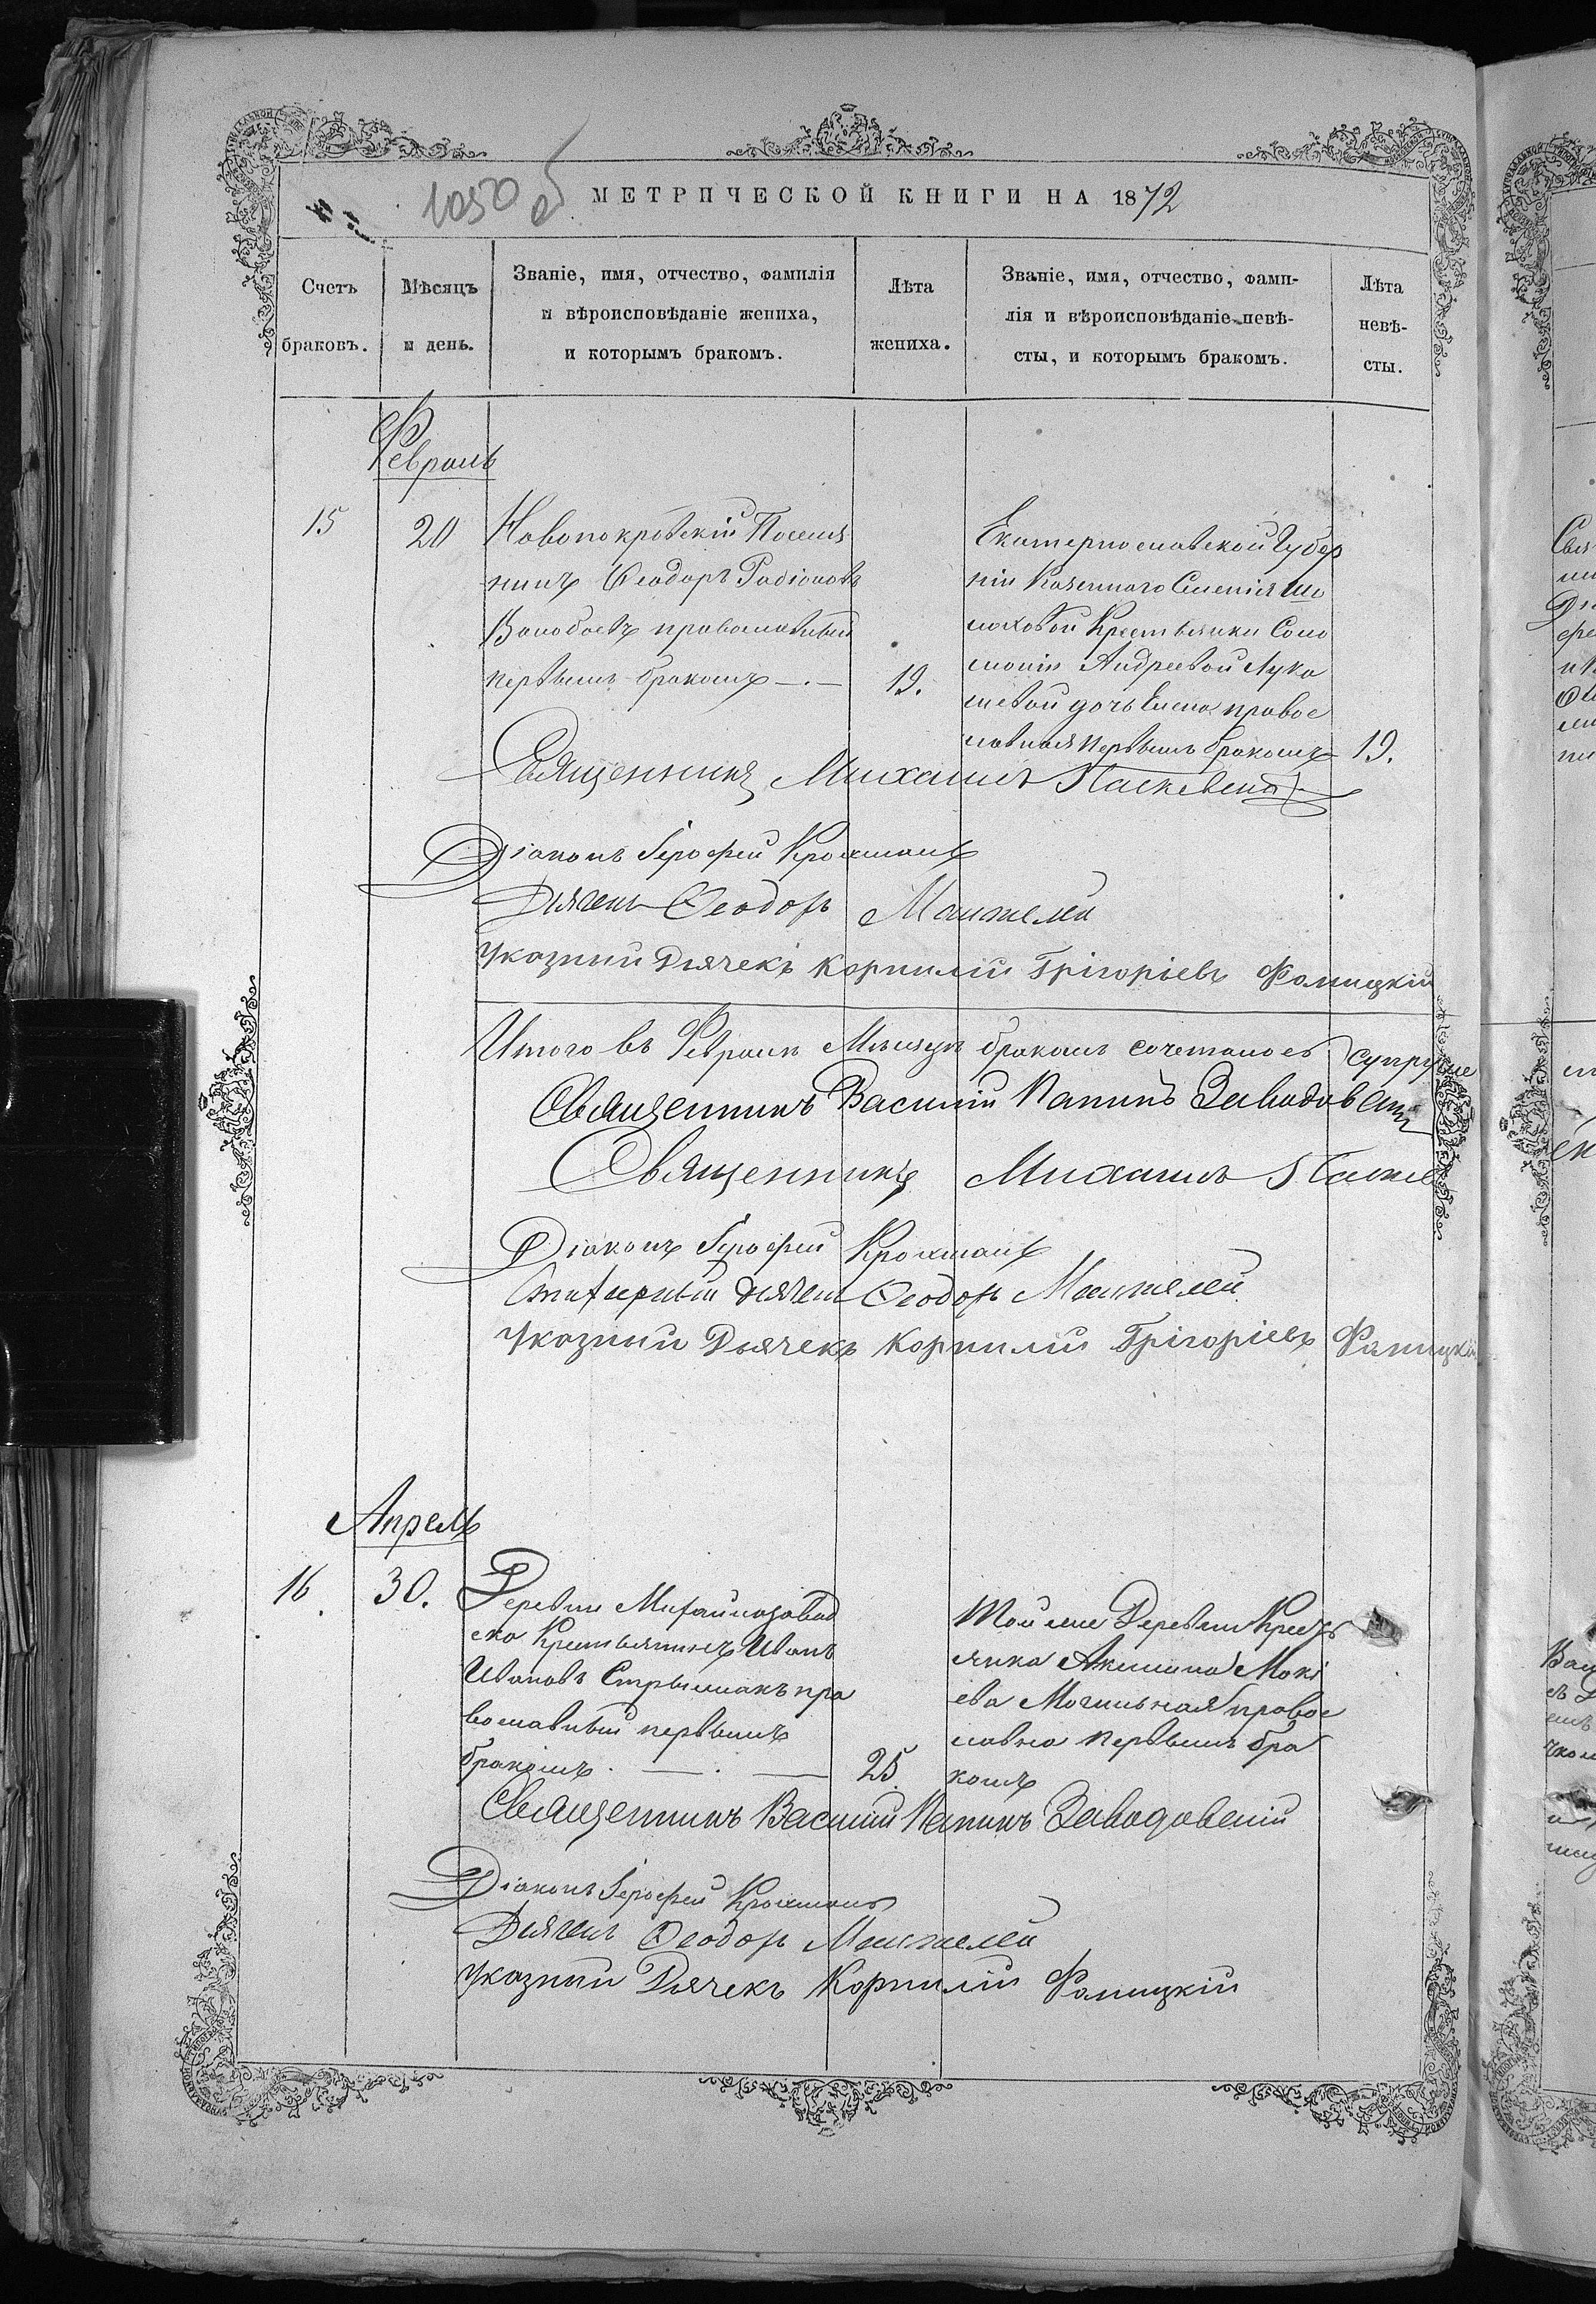 1050 об
МЕТРИЧЕСКОЙ КНИГИ НА 1872
Счетъ браковъ.
Мѣсяцъ и день.
Званіе, имя, отчество, фамилія
и вѣроисповѣданіе жениха,
и которымъ бракомъ.
Лѣта жениха.
Званіе, имя, отчество, фами-
лія и вѣроисповѣданіе невѣ-
сты, и которымъ бракомъ.
Лѣта
невѣ-
сты.
Февраль
15
20
Новопокровскій Поселя
нинъ Ѳеодоръ Родіоновъ
православный
первымъ бракомъ
19.
Екатеринославской Губер
ніи Казеннаго Селенія
Крестьянки Соло
моніи Андреевой Лука
шевой дочь Елена правос
лавная первымъ бракомъ
19.
Священникъ Михаилъ
Діаконъ Іерофей
Дьячекъ Ѳеодоръ Манжелей
Указный Дьячекъ Корнилій Грігоріевъ Фалицкій
Итого въ Февралѣ Мѣсяцѣ бракомъ сочетаноеъ супруже
Священникъ Василій Капинъ Заводовскій
Священникъ Михаилъ
Діаконъ Іерофей
Штатный дьячекъ Ѳеодоръ Манжелей
Указный Дьячекъ Корнилій Грігоріевъ Фалицкій
Апрель
16.
30.
Деревни Михайлозавод
ска Крестьянинъ Иванъ
Ивановъ пра
вославный первымъ
бракомъ.
25.
Той же Деревни Крестъ
янка Акилина Мокі
ева Могильная правос
лавна первымъ бра
комъ
Священникъ Василій Капинъ Заводовскій
Діаконъ Іерофей
Дьячекъ Ѳеодоръ Манжелей
Указный Дьячекъ Корнилій Фалицкій